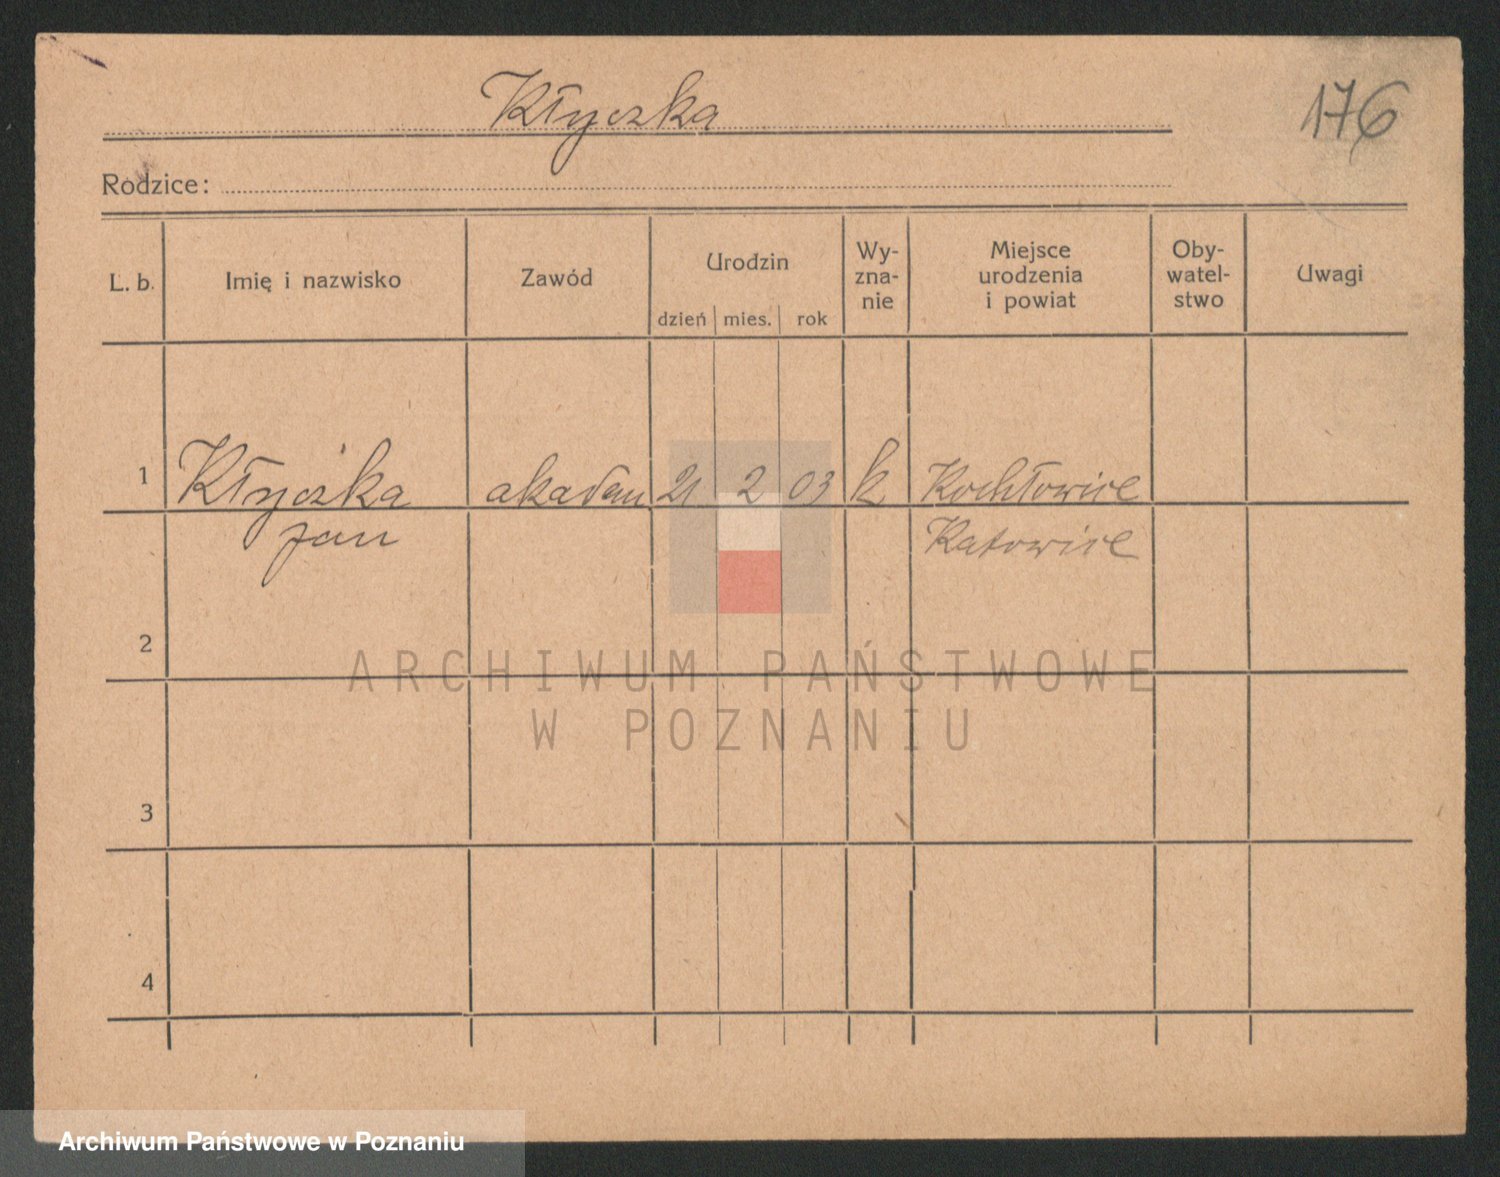 Kłyczka
176
Rodzice:
L. b. Imię i nazwisko Zawód Urodzin dzień mies. rok Wy-zna-nie Miejsce urodzenia i powiat Oby-watel-stwo Uwagi
1 Kłyczka akadem 21 2 03 k Kochłowice
Jan Katowice
2
ARCHIWUM PAŃSTWOWE
W POZNANIU
3
4
Archiwum Państwowe w Poznaniu